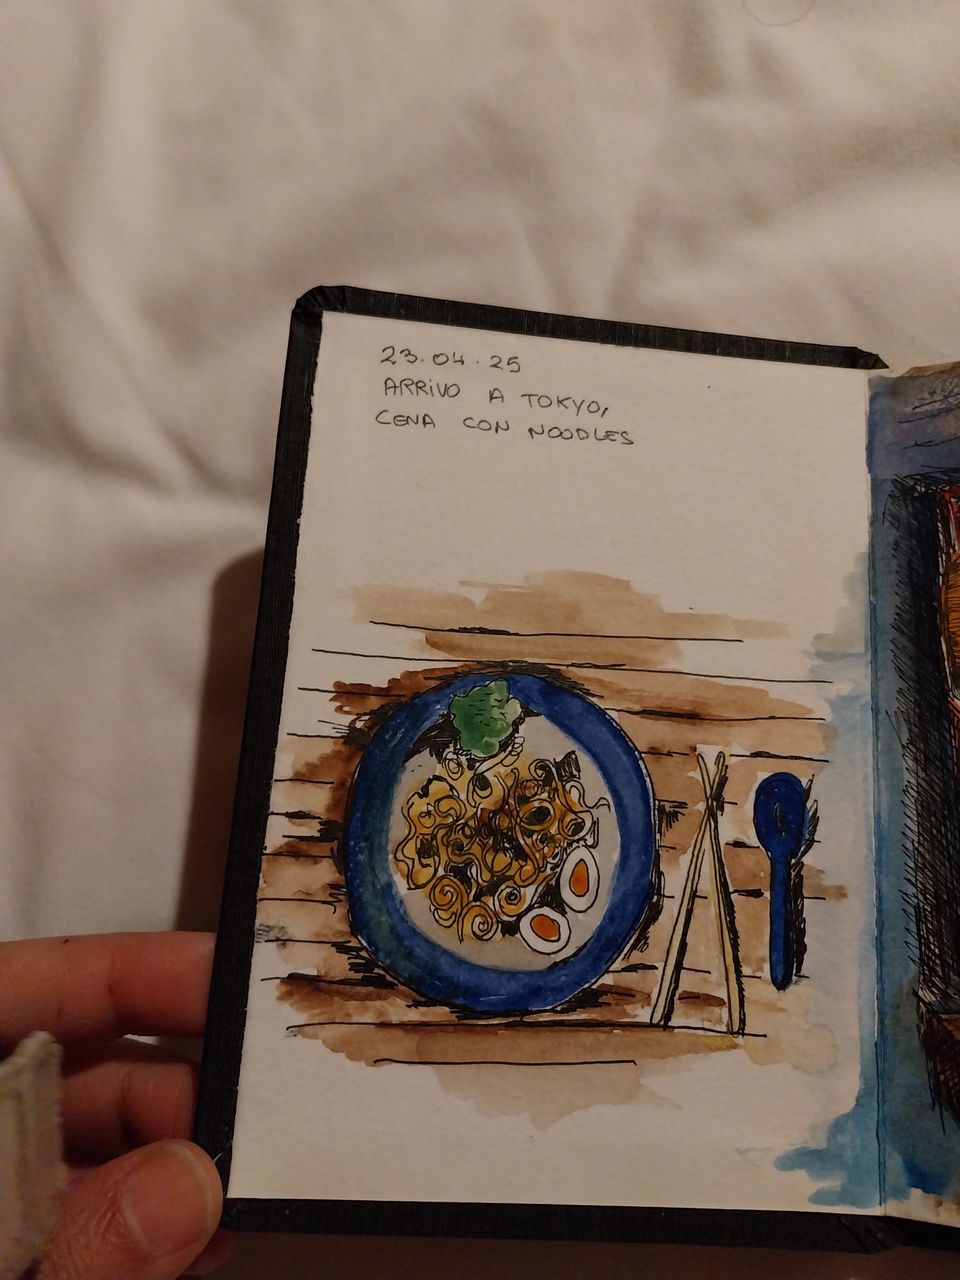 23.04.25
ARRIVO A TOKYO,
CENA CON NOODLES